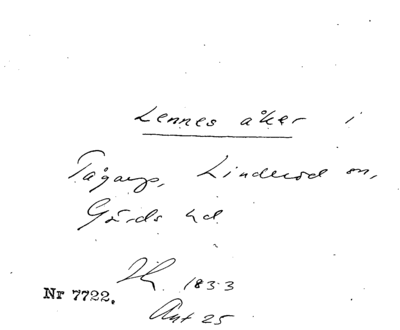 Lennes åker i
Tågarp, Linderöd sn,
Gärds hd
1833
Nr 7722.
Akt 25